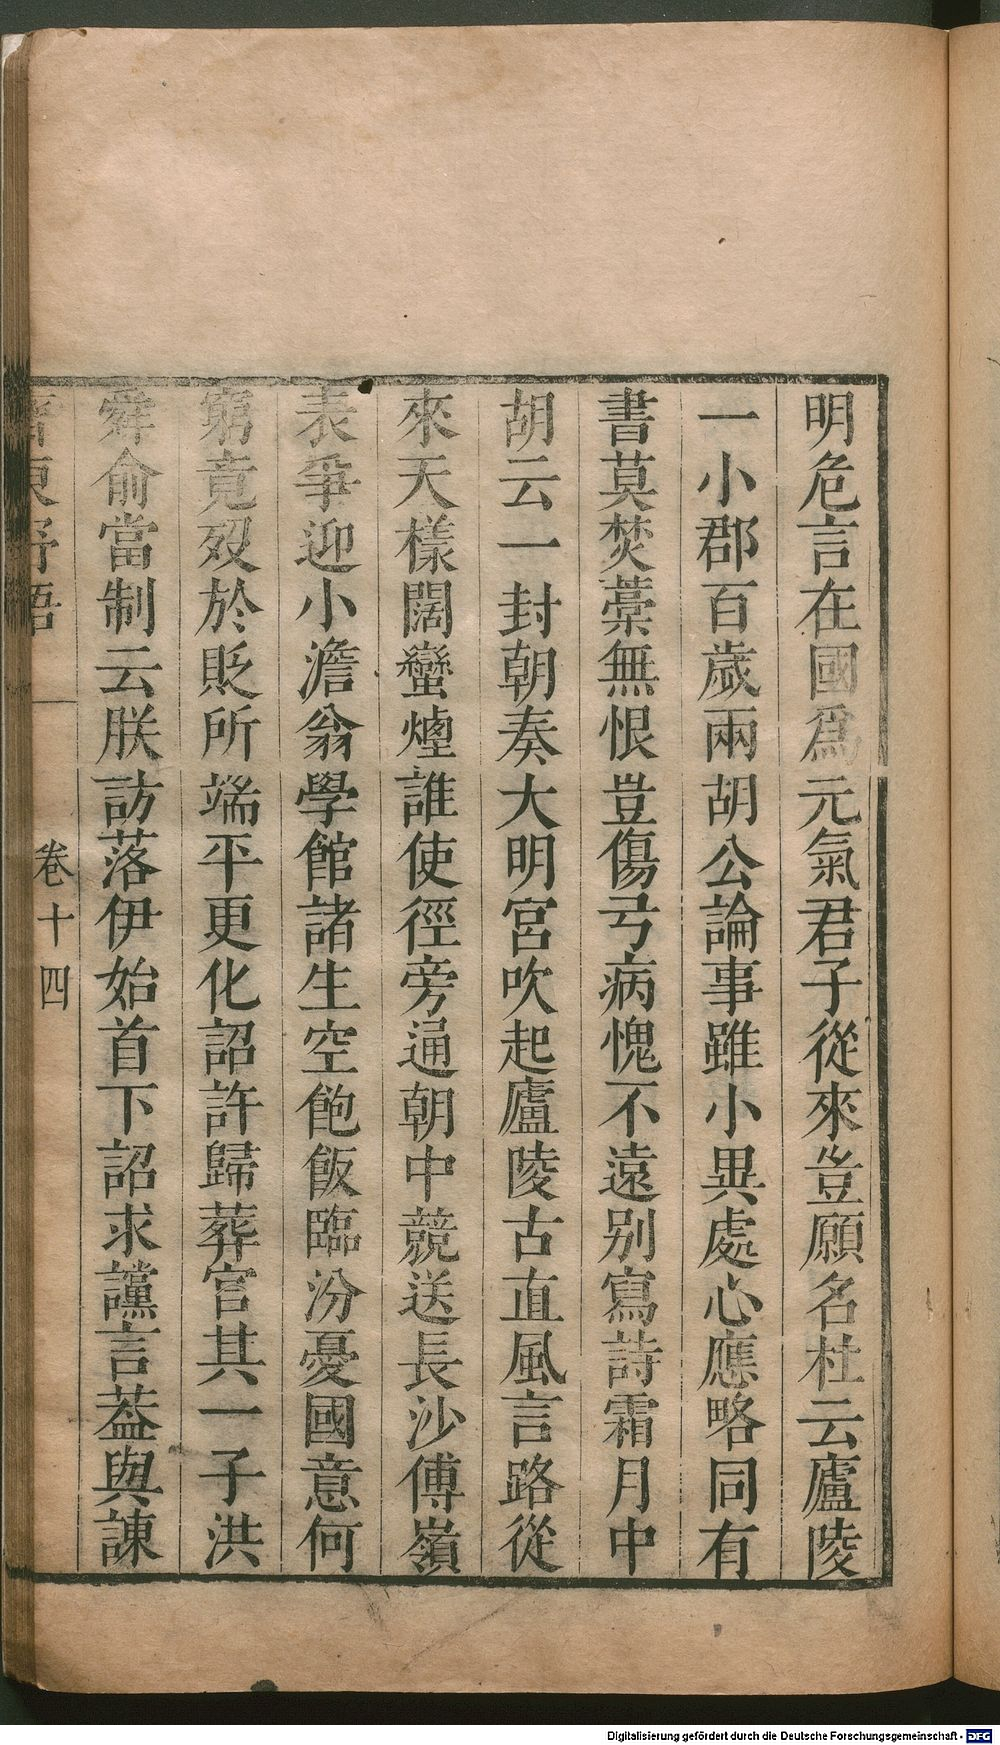 明危言在國爲元氣君子從來豈願名杜云廬陵
一小郡百歲兩胡公論事雖小異處心應略同有
書莫焚藁無恨豈傷弓病愧不遠别寫詩霜月中
胡云一封朝奏大明宮吹起廬陵古直風言路從
來天樣闊蠻煙誰使徑旁通朝中競送長沙傅嶺
表爭迎小澹翁學館諸生空飽飯臨汾憂國意何
窮竟歿於貶所端平更化詔許歸葬官其一子洪
舜俞當制云朕訪落伊始首下詔求讜言葢與諫
齊東野語 卷十四
Digitalisierung gefördert durch die Deutsche Forschungsgemeinschaft - DFG